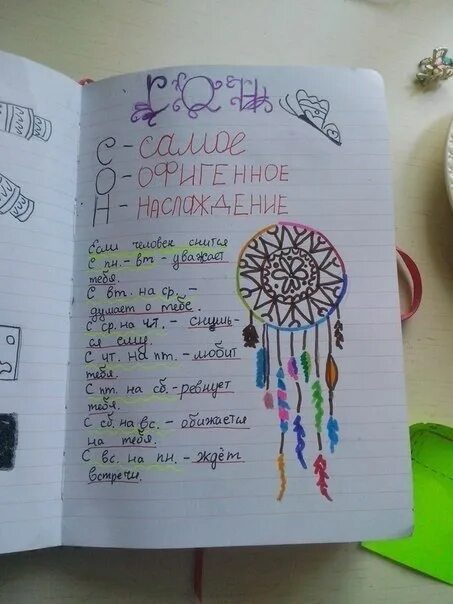 СОН
С - САМОЕ
О - ОФИГЕННОЕ
Н - НАСЛАЖДЕНИЕ
Если человек снится
С пн. - вт - уважает
тебя.
С вт. на ср. -
думает о тебе.
С ср. на чт. - снишь-
ся ему.
С чт. на пт. - любит
тебя.
С пт. на сб. - ревнует
тебя.
С сб. на вс. - обижается
на тебя.
С вс. на пн. - ждёт
встречи.